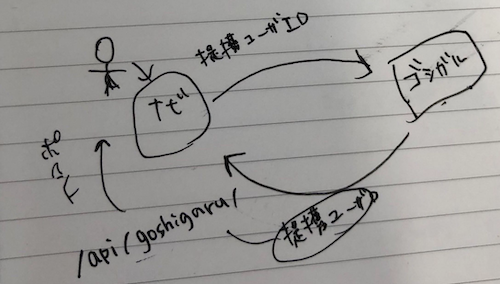 提携ユーザID
ナビ
ゴシガル
ポイント
/api/goshigaru/
提携ユーザID